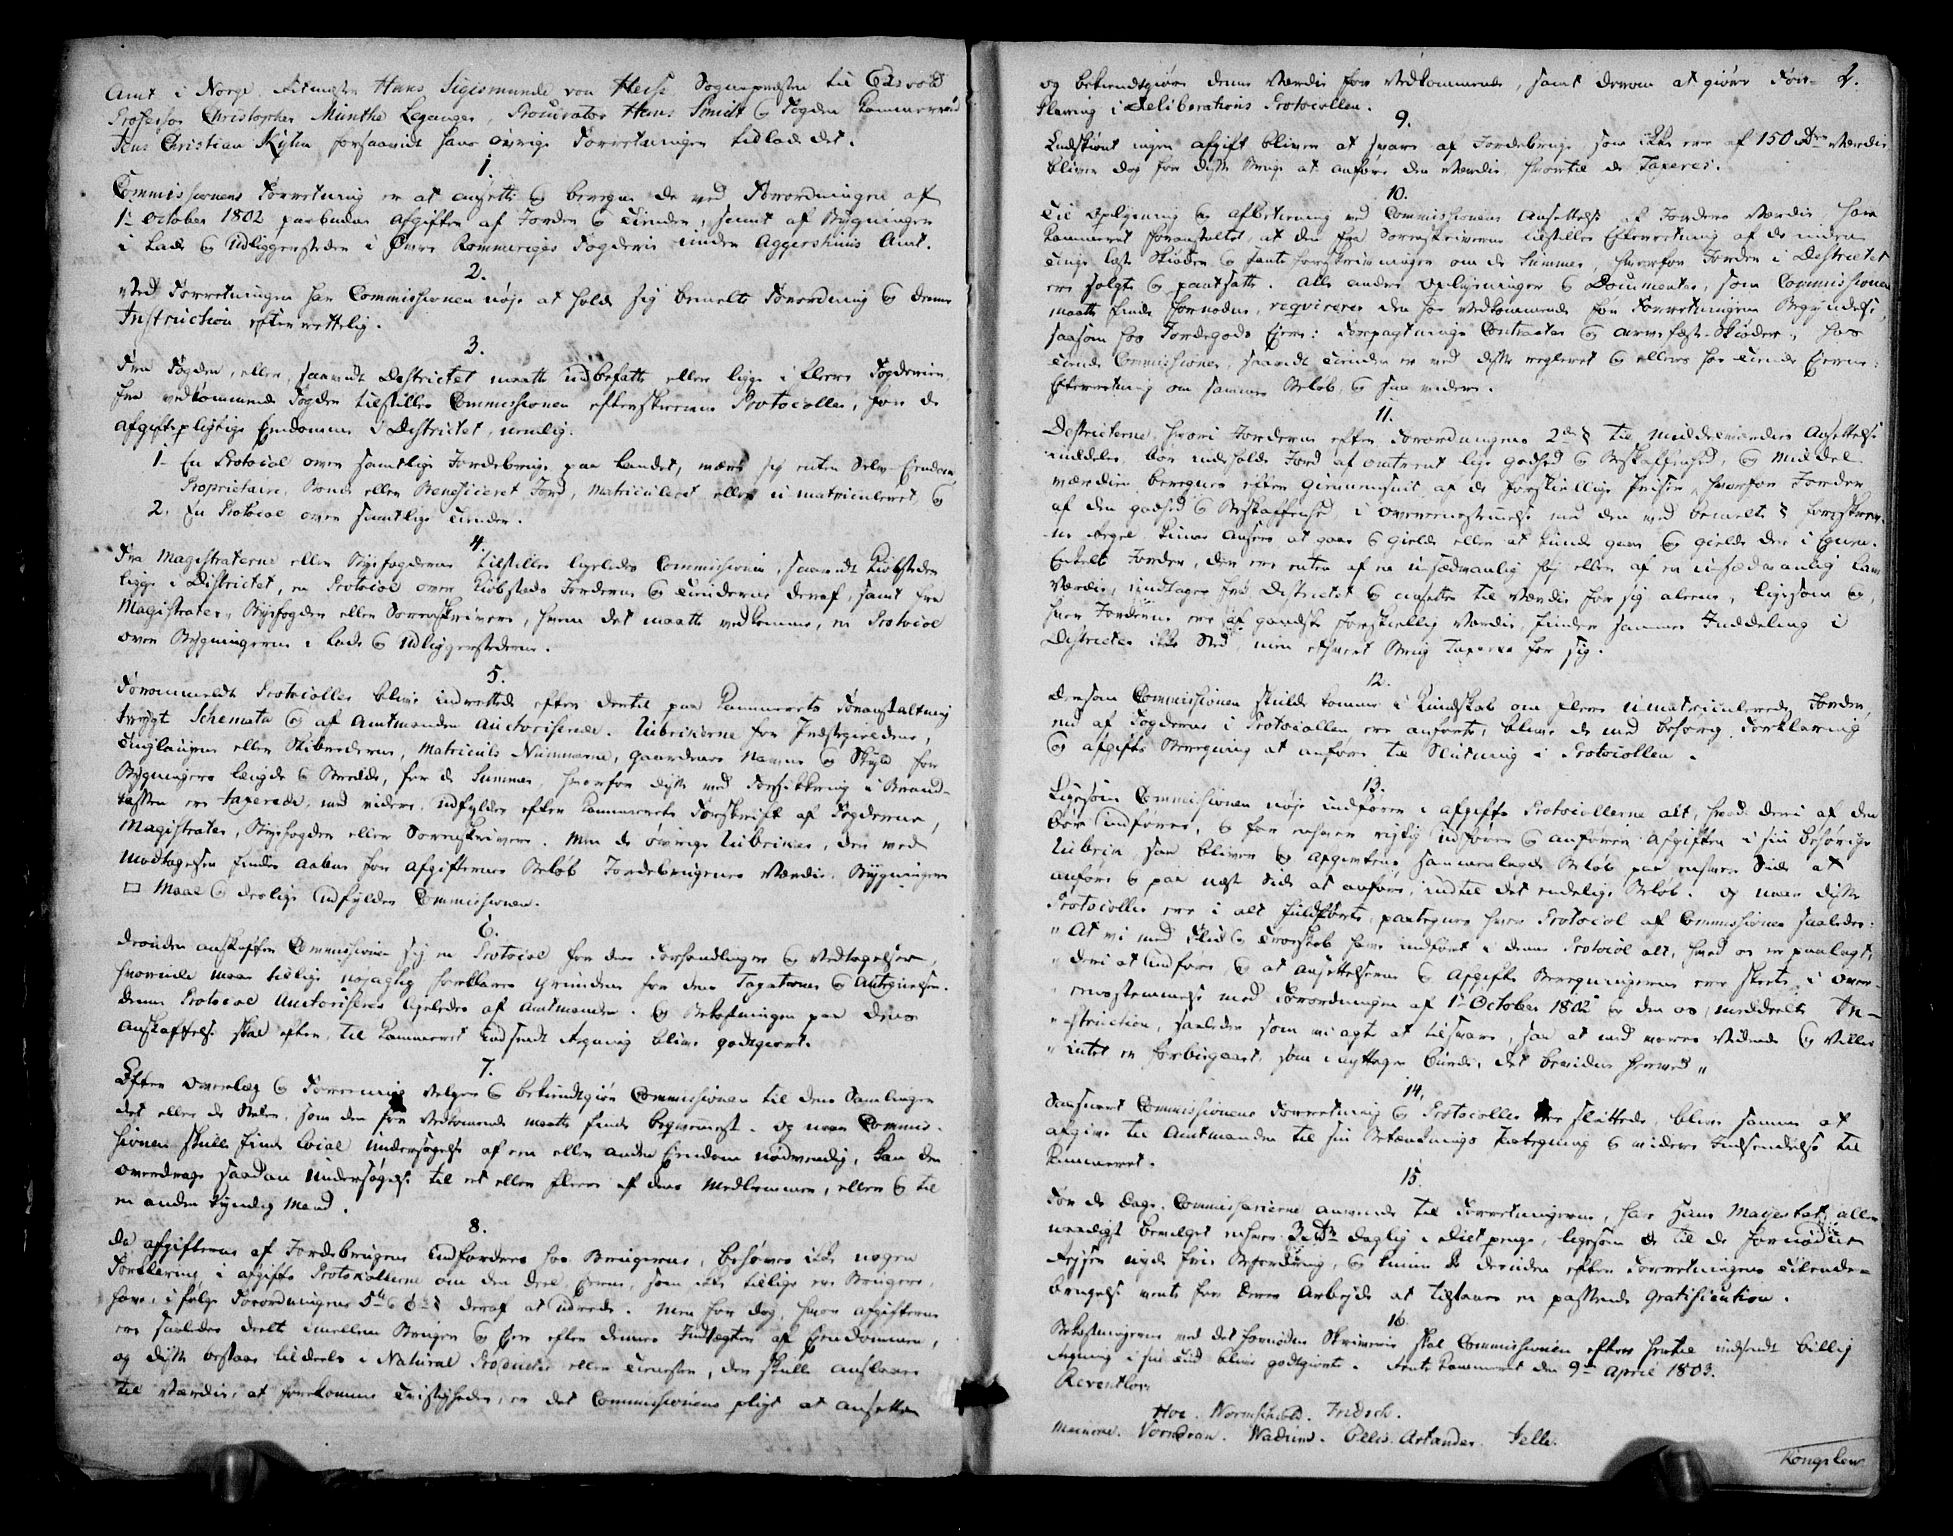 Amt i Norge Ritmester Hans Sigismund von Hesse Sognepresten til Edsvold
Professor Christopher Munthe Leganger, Procurator Hans Smidt og Fogden Kammerraad
Jens Christian Kyhn forsaavidt hans øvrige Forretninger tillod det.
1.
Commissionens Forretning er at ansætte og beregne de ved Forordningen af
1te October 1802 paabudne Afgifter af Jorder og Tiender, samt af Bygninger
i Lade og Udliggersteder i Øvre Rommeriges Fogderie under Aggershuus Amt.
2.
Ved Forretningen har Commissionen nøje at holde sig bemelte Forordning og denne
Instruction efterrettelig.
3.
Fra Fogden, eller, saavidt Districtet maatte indbefatte eller ligge i flere Fogderier,
fra vedkommende Fogder tilstilles Commissionen efterskrevne Protocoller, for de
afgiftspligtige Eiendomme i Districtet, nemlig:
1. En Protocol over samtlige Jordebruge paa Landet, være sig enten Selv-Eiendom
Proprietair, Bonde eller Beneficeret Jord, Matriculeret eller umatriculeret, og
2. En Protocol over samtlige Tiender.
4.
Fra Magistraterne eller Byefogderne tilstilles ligeledes Commissionen, saavidt Kiøbsteder
ligge i Districtet, en Protocol over Kiøbsteds Jorderne og Tienderne deraf, samt fra
Magistrater, Byefogden eller Sorenskrivere, hvem det maatte vedkomme, en Protocol
over Bygningerne i Lade og Udliggerstederne.
5.
Forommeldte Protocoller blive indrettede efter dertil paa Kammerets Foranstaltning
trygt Schemata og af Amtmanden Auctoriserede. Rubrikerne for Præstegieldene,
Tinglaugene eller Skibrederne, Matriculs Nummerne, Gaardenes Navne og Skyld for
Bygningers Længde og Bredde, for de Summer, hvorfor disse med Forsikkring i Brand-
Cassen ere taxerede, med videre, udfyldes efter Kammerets Forskrift af Fogderne,
Magistrater, Byefogder eller Sorenskrivere. Men de øvrige Rubriker, der ved
Modtagelsen findes aabne for Afgifternes Beløb Jordebrugenes Værdie, Bygninger
□ Maal og deslige udfylder Commissionen.
6.
Desuden anskaffer Commissionen sig en Protocol for dens Forhandlinger og Vedtagelser,
hvorinde maae tillige nøjagtig forklares Grundene for dens Taxationer og Antegnelser.
Denne Protocol Auctoriseres ligeledes af Amtmanden. Og Bekostningen paa dens
Anskaffelse skal efter, til Kammeret indsendt Regning blive godtgiort.
7.
Efter Overlæg og Forening vælger og bekiendtgiør Commissionen til dens Samlinger
det eller de Steder, som den for Vedkommende maatte finde beqvemmest. Og naar Commis-
sionen skulle finde Local Undersøgelse af een eller anden Eiendom nødvendig, kan den
overdrage saadan Undersøgelse til et eller flere af dens Medlemmer, eller og til
en anden kyndig Mand.
8.
Da Afgifterne af Jordebrugene indfordres hos Brugerne, behøves ikke nogen
Forklaring i Afgifts Protocollerne om den Deel, Eierne, som ikke tillige ere Brugere,
have, i følge Forordningens 5te og 6te § deraf at udrede. Men for dog, hvor Afgifterne
ere saaledes deelt imellem Bruger og Eier efter dennes Indtægter af Eiendommen,
og disse bestaae tildeels i Natural Producter eller Tienester, der skulle anslaaes
til Værdie, at forekomme Tvistigheder, er det Commissionens pligt at ansætte
2.
og bekiendtgiøre denne Værdie for Vedkommende, samt derom at giøre For-
klaring i Deliberations Protocollen.
9.
Endskiønt ingen Afgift bliver at svare af Jordebruge som ikke ere af 150 Rdrs Værdie
bliver dog for disse Bruge at anføre den Værdie, hvortil de Taxeres.
10.
Til Oplysning og Afbetining ved Commissionens Ansættelse af Jordens Værdie, har
Kammeret foranstaltet, at den fra Sorenskriverne tilstilles Efterretning af de inden
Tinge læste Skiøder og Panteforskrivninger om de Summer, hvorfor Jorder i Districtet
ere solgte og pantsatte. Alle andre Oplysninger og Documenter, som Commissionen
maatte finde fornødne, reqvireres den hos Vedkommende før Forretningens Begyndelse,
saasom hos Jordegods Eiere: Forpagtnings Contracter og Arvefæste-Skiøder; hos
Tiende Commissioner, saavidt Tienden er ved disse regleret og ellers hos Tiende Eierne:
Efterretning om sammes Beløb og saa videre.
11.
Districterne, hvori Jorderne efter Forordningens 2den § til Middelværdiers Ansættelse
inddeles, bør indeholde Jord af omtrent lige godhed og Beskaffenhed, og Middel-
værdien beregnes efter Giennemsnit af de forskiellige Priser, hvorfor Jorder
af den godhed og Beskaffenhed, i Overeensstemmelse med den ved bemelte § foreskrev-
ne Regel kunne ansees at gaae og gielde eller at kunde gaae og gielde der i Egnen.
Enkelte Jorder, der ere enten af en usædvanlig høj eller af en usædvanlig lav
Værdie, undtages fra Districtet og ansættes til Værdie for sig alene, ligesom og,
hvor Jorderne ere af gandske forskiellig Værdie, finder sammes Inddeling i
Districter ikke Sted, men ethvert Brug Taxeres for sig.
12.
Dersom Commissionen skulde komme i Kundskab om flere umatriculerede Jorder,
end af Fogderne i Protocollen ere anførte, blive de med behørig Forklaring
og Afgifts Beregning at anføre til Slutning i Protocollen.
13.
Ligesom Commissionen nøje indfører i Afgifts Protocollerne alt, hvad deri af den
bør indføres, og for enhver rigtig indfører og anfører Afgiften i sin behørige
Rubrik, saa bliver og Afgiftens sammenlagde Beløb paa enhver Side at
anføre og paa næste Side at anføre, indtil det endelige Beløb. Og naar disse
Protocoller ere i alt fuldførte, paategnes hver Protocol af Commissionen saaledes:
" At vi med Fliid og Troeskab have indført i denne Protocol alt, hvad os er paalagt,
" deri at indføre, og at Ansættelserne og Afgifts Beregningerne ere skeete i Over-
" eensstemmelse med Forordningen af 1te October 1802 og den os meddeelte In-
" struction, saaledes som vi agte at tilsvare, saa at med vores Vidende og Villie
" intet er forbigaaet, som iagttages burde, det bevidnes herved "
14.
Saasnart Commissionens Forretning og Protocoller ere sluttede, blive samme at
afgive til Amtmanden til sin Betænknings Paategning og videre Indsendelse til
Kammeret.
15.
For de Dage, Commissarierne anvende til Forretningerne, har Hans Majestæt aller-
naadigst bevilget enhver 3 Rdr daglig i Diætpenge, ligesom de til de fornødne
Rejser nyde frie Befordring, og kunne de desuden efter Forretningens Tilende-
bringelse vente for deres Arbejde at tilstaaes en passende Gratification.
16.
Bekostningerne med det fornødne Skriverie skal Commissionen efter hertil indsendt billig
Regning i sin Tid blive godtgiort. Rentekammeret den 9de April 1803.
Reventlow
Hoe. Wormskiold. Fridsch.
Meinere. Vorndran. Wadum. Ollis. Artander. Selle.
Kongslew